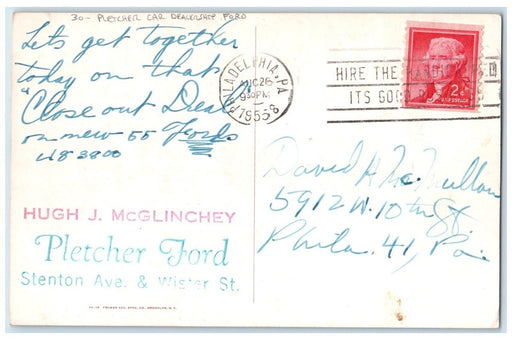 30- PLETCHER CAR DEALERSHIP FORD
Lets get together
today on that
"Close out Deal
on new 55 Fords
HUGH J. McGLINCHEY
Pletcher Ford
Stenton Ave. & Wister St.
PHILADELPHIA, PA.
AUG 26
9 30 PM
1955
8
HIRE THE
ITS GOO
2¢
David H. Mc Mullan
5912 N. 10th St.
Phila. 41, Pa.